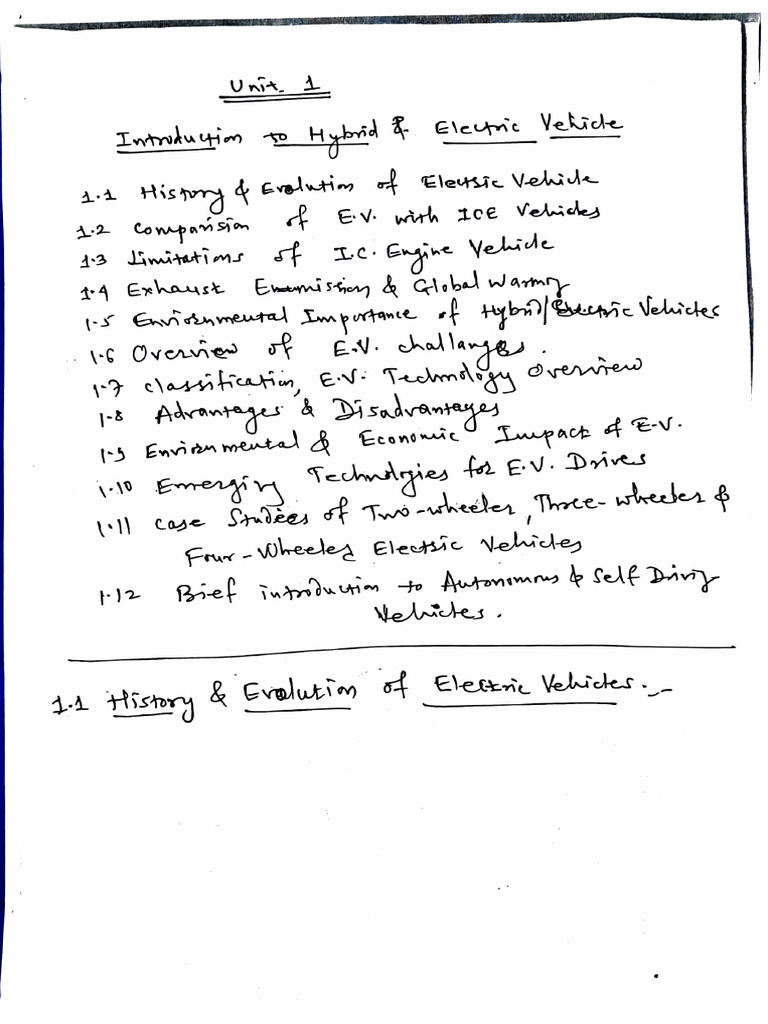 Unit-1
Introduction to Hybrid & Electric Vehicle
1.1 History & Evolution of Electric Vehicle
1.2 Comparision of E.V. with ICE Vehicles
1.3 Limitations of I.C. Engine Vehicle
1.4 Exhaust Emmission & Global Warming
1.5 Enviornmental Importance of Hybrid/Electric Vehicles
1.6 Overview of E.V. challanges.
1.7 Classification, E.V. Technology Overview
1.8 Advantages & Disadvantages
1.9 Enviornmental & Economic Impact of E.V.
1.10 Emerging Technologies for E.V. Drives
1.11 Case Studies of Two-wheeler, Three-wheeler &
Four-Wheeler Electric Vehicles
1.12 Brief introduction to Autonomous & Self Driving
Vehicles.
1.1 History & Evolution of Electric Vehicles:-